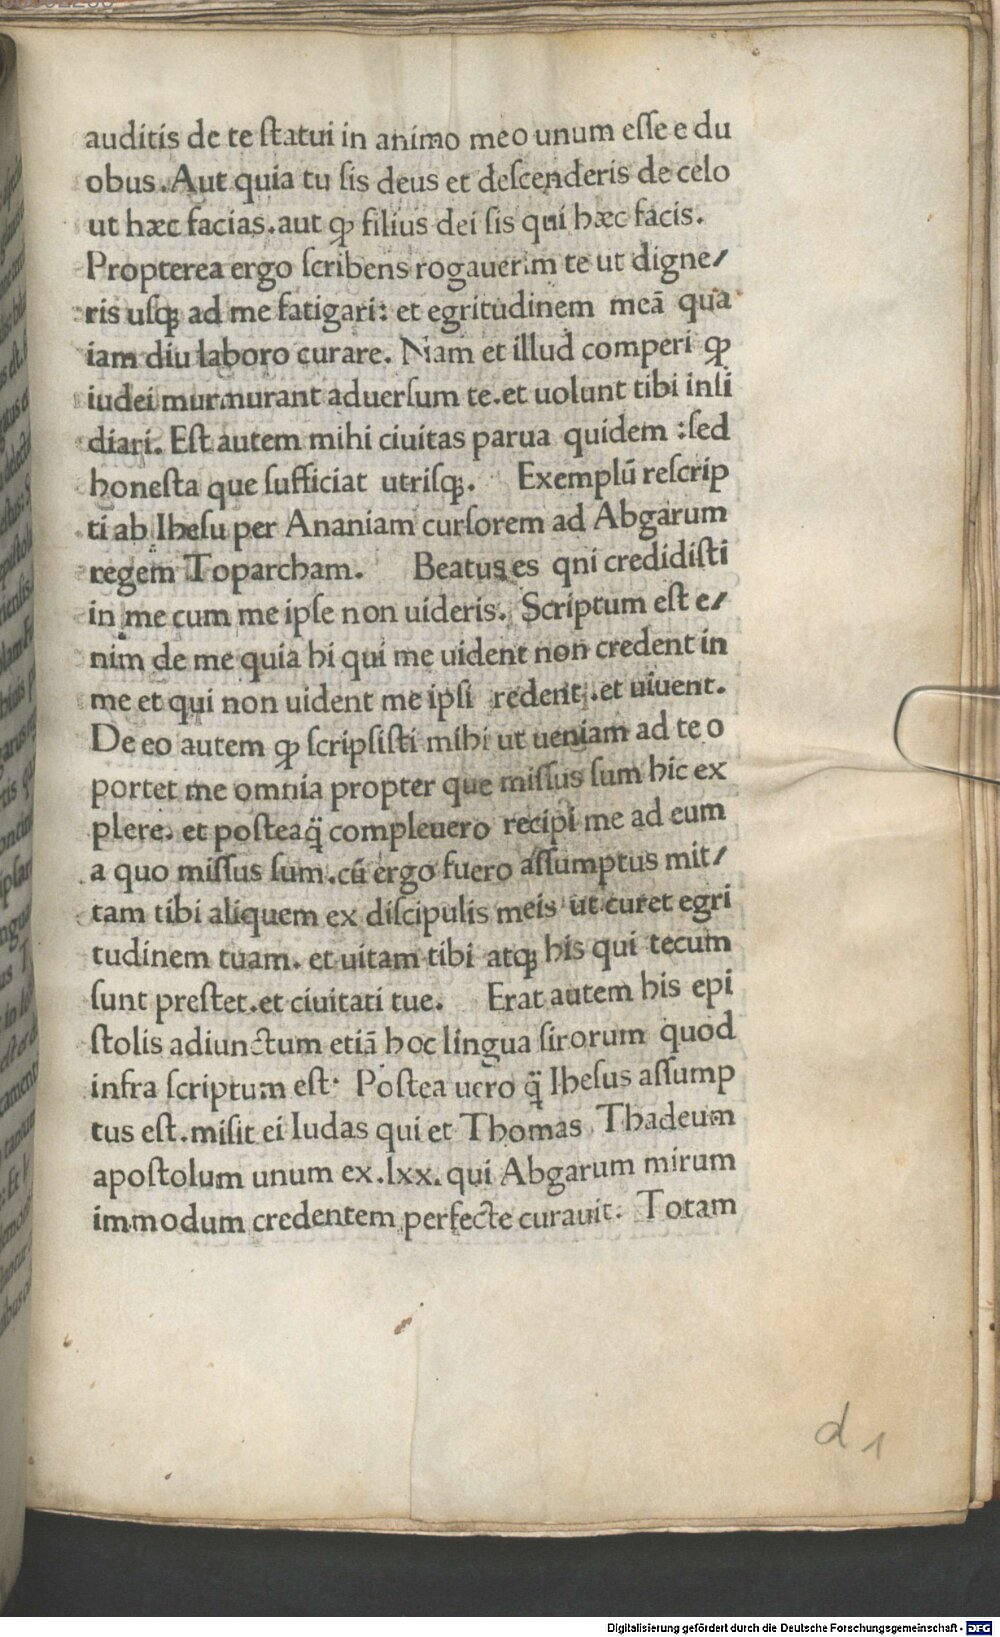 auditis de te ſtatui in animo meo unum eſſe e du
obus. Aut quia tu ſis deus et deſcenderis de celo
ut hæc facias. aut ꝙ filius dei ſis qui hæc facis.
Propterea ergo ſcribens rogauerim te ut digne/
ris uſqꝫ ad me fatigari: et egritudinem meā qua
iam diu laboro curare. Nam et illud comperi ꝙ
iudei murmurant aduerſum te. et uolunt tibi inſi
diari. Eſt autem mihi ciuitas parua quidem : ſed
honeſta que ſufficiat utriſqꝫ. Exemplū reſcrip
ti ab Iheſu per Ananiam curſorem ad Abgarum
regem Toparcham. Beatus es qni credidiſti
in me cum me ipſe non uideris. Scriptum eſt e/
nim de me quia hi qui me uident non credent in
me et qui non uident me ipſi redent. et uiuent.
De eo autem ꝙ ſcripſiſti mihi ut ueniam ad te o
portet me omnia propter que miſſus ſum hic ex
plere. et poſteaq̄ compleuero recipi me ad eum
a quo miſſus ſum. cū ergo fuero aſſumptus mit/
tam tibi aliquem ex diſcipulis meis ut curet egri
tudinem tuam. et uitam tibi atqꝫ his qui tecum
ſunt preſtet. et ciuitati tue. Erat autem his epi
ſtolis adiunctum etiā hoc lingua ſirorum quod
infra ſcriptum eſt. Poſtea uero q̄ Iheſus aſſump
tus eſt. miſit ei Iudas qui et Thomas Thadeum
apoſtolum unum ex .lxx. qui Abgarum mirum
immodum credentem perfecte curauit. Totam
d1
Digitalisierung gefördert durch die Deutsche Forschungsgemeinschaft - DFG